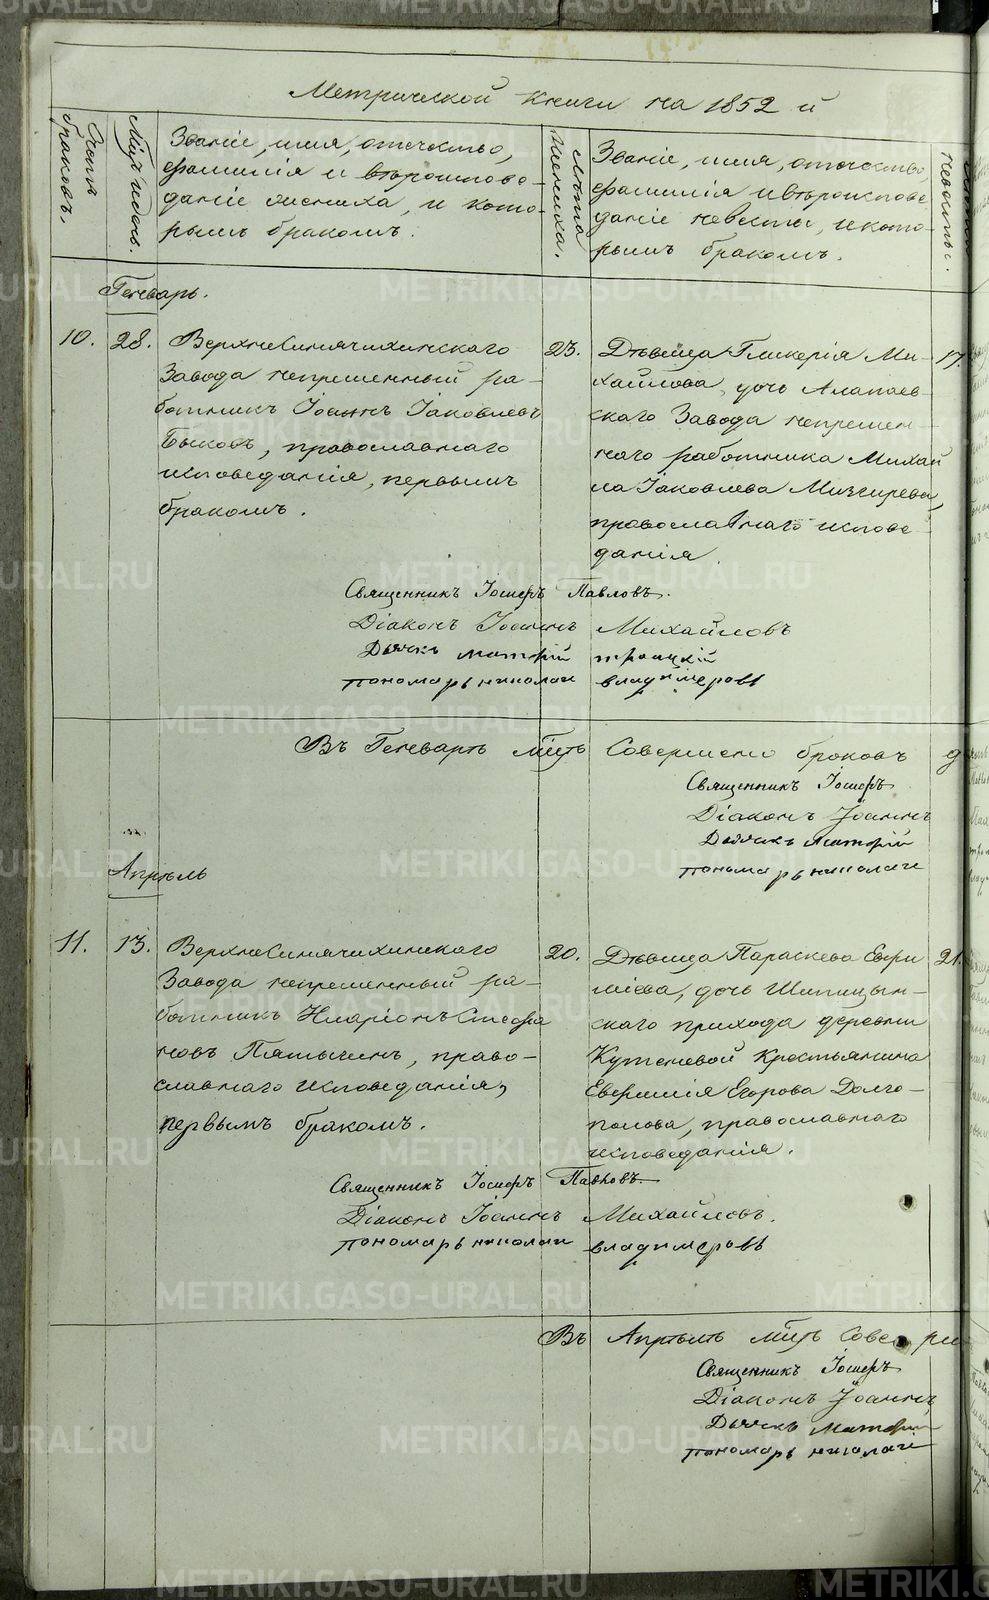 Метрической книги на 1852 й
Щетъ браковъ.
Мѣц. и день.
Званіе, имя, отчество,
фамилія и вѣроиспове-
даніе жениха, и кото-
рымъ бракомъ.
Лѣта жениха.
Званіе, имя, отчество,
фамилія и вѣроиспове
даніе невесты, и кото-
рымъ бракомъ.
Лѣта невесты.
Генварь.
10. 28. ВерхнеСинячихинскаго
Завода непременный ра-
ботникъ Іоаннъ Іаковлевъ
Быковъ, православнаго
исповеданія, первымъ
бракомъ.
23.
Дѣвица Гликерія Ми-
хайлова, дочь Алапаев-
скаго Завода непремен-
наго работника Михаи
ла Іаковлева Мизгирева,
православнаго испове-
данія.
17.
Священникъ Іосифъ Павловъ.
Діаконъ Іоаннъ Михайловъ
Дьячкъ матфій троицкій
пономарь николаи владимеровъ
Въ Генварѣ мѣцѣ Совершено браковъ д
Священникъ Іосифъ
Діаконъ Іоаннъ
Дьячкъ матфій
пономарь николаи
Апрѣль
11. 13. ВерхнеСинячихинскаго
Завода непременный ра-
ботникъ Иларіонъ Стефа
новъ Пятыгинъ, право-
славнаго исповеданія,
первымъ бракомъ.
20.
Дѣвица Параскева Евфи
міева, дочь Шипицын-
скаго прихода деревни
Кутеневой Крестьянина
Евфимія Егорова Долго-
полова, православнаго
исповеданія.
21.
Священникъ Іосифъ Павловъ.
Діаконъ Іоаннъ Михайловъ.
пономарь николаи владимеровъ
Въ Апрѣлѣ мѣцѣ Сове ше
Священникъ Іосифъ
Діаконъ Іоаннъ
Дьячкъ матфій
пономарь николаи
METRIKI.GASO-URAL.RU